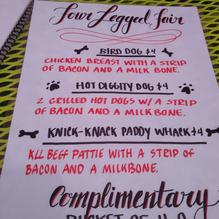 Four Legged Fair
BIRD DOG $4
CHICKEN BREAST WITH A STRIP
OF BACON AND A MILK BONE.
HOT DIGGITY DOG $4
2 GRILLED HOT DOGS W/ A STRIP
OF BACON AND A MILKBONE.
KNICK-KNACK PADDY WHACK $4
KLL BEEF PATTIE WITH A STRIP
OF BACON AND A MILKBONE.
Complimentary
BUCKET OF